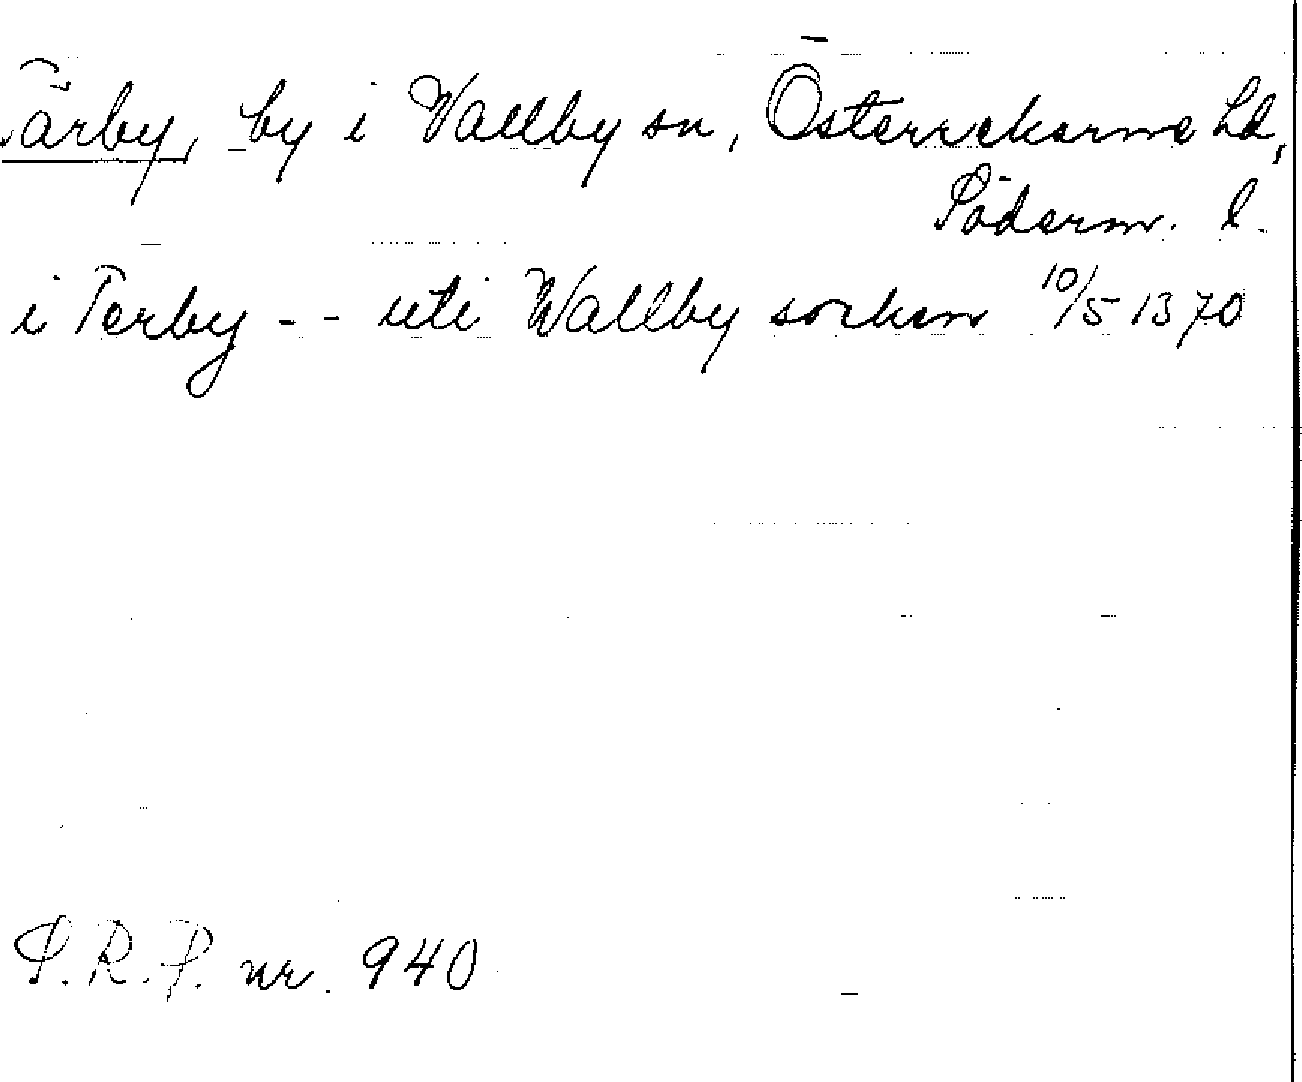 Tärby, by i Vallby sn, Österrekarne hd,
Söderm. l.
i Terby - - uti Wallby sorken 10/5 1370
S.R.P. nr. 940